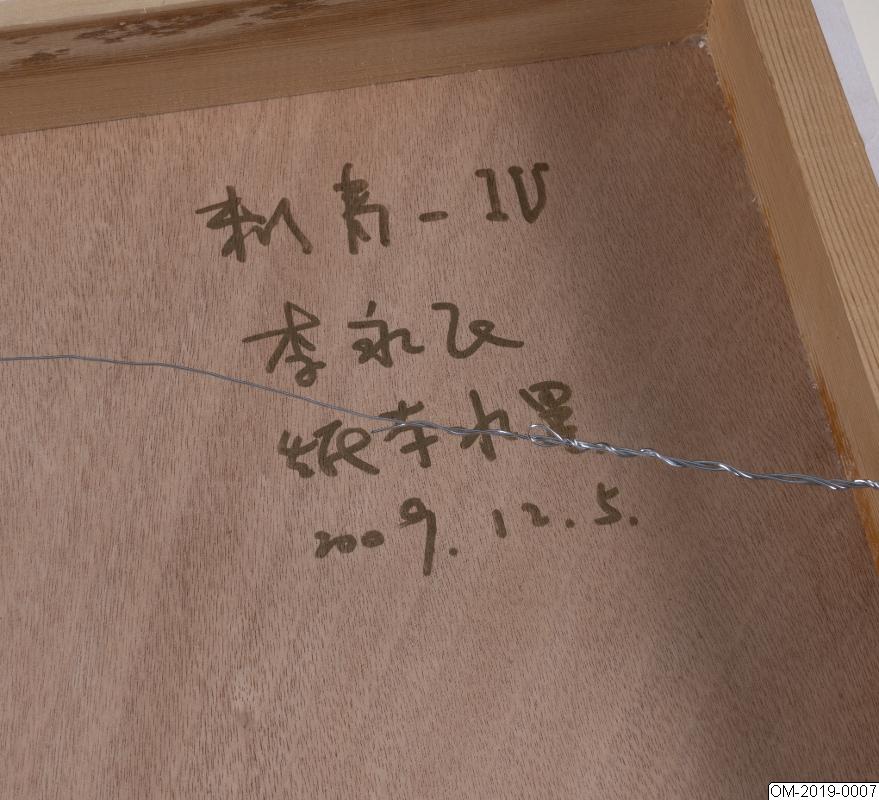 李永飞
纸本水墨
2009.12.5.
OM-2019-0007